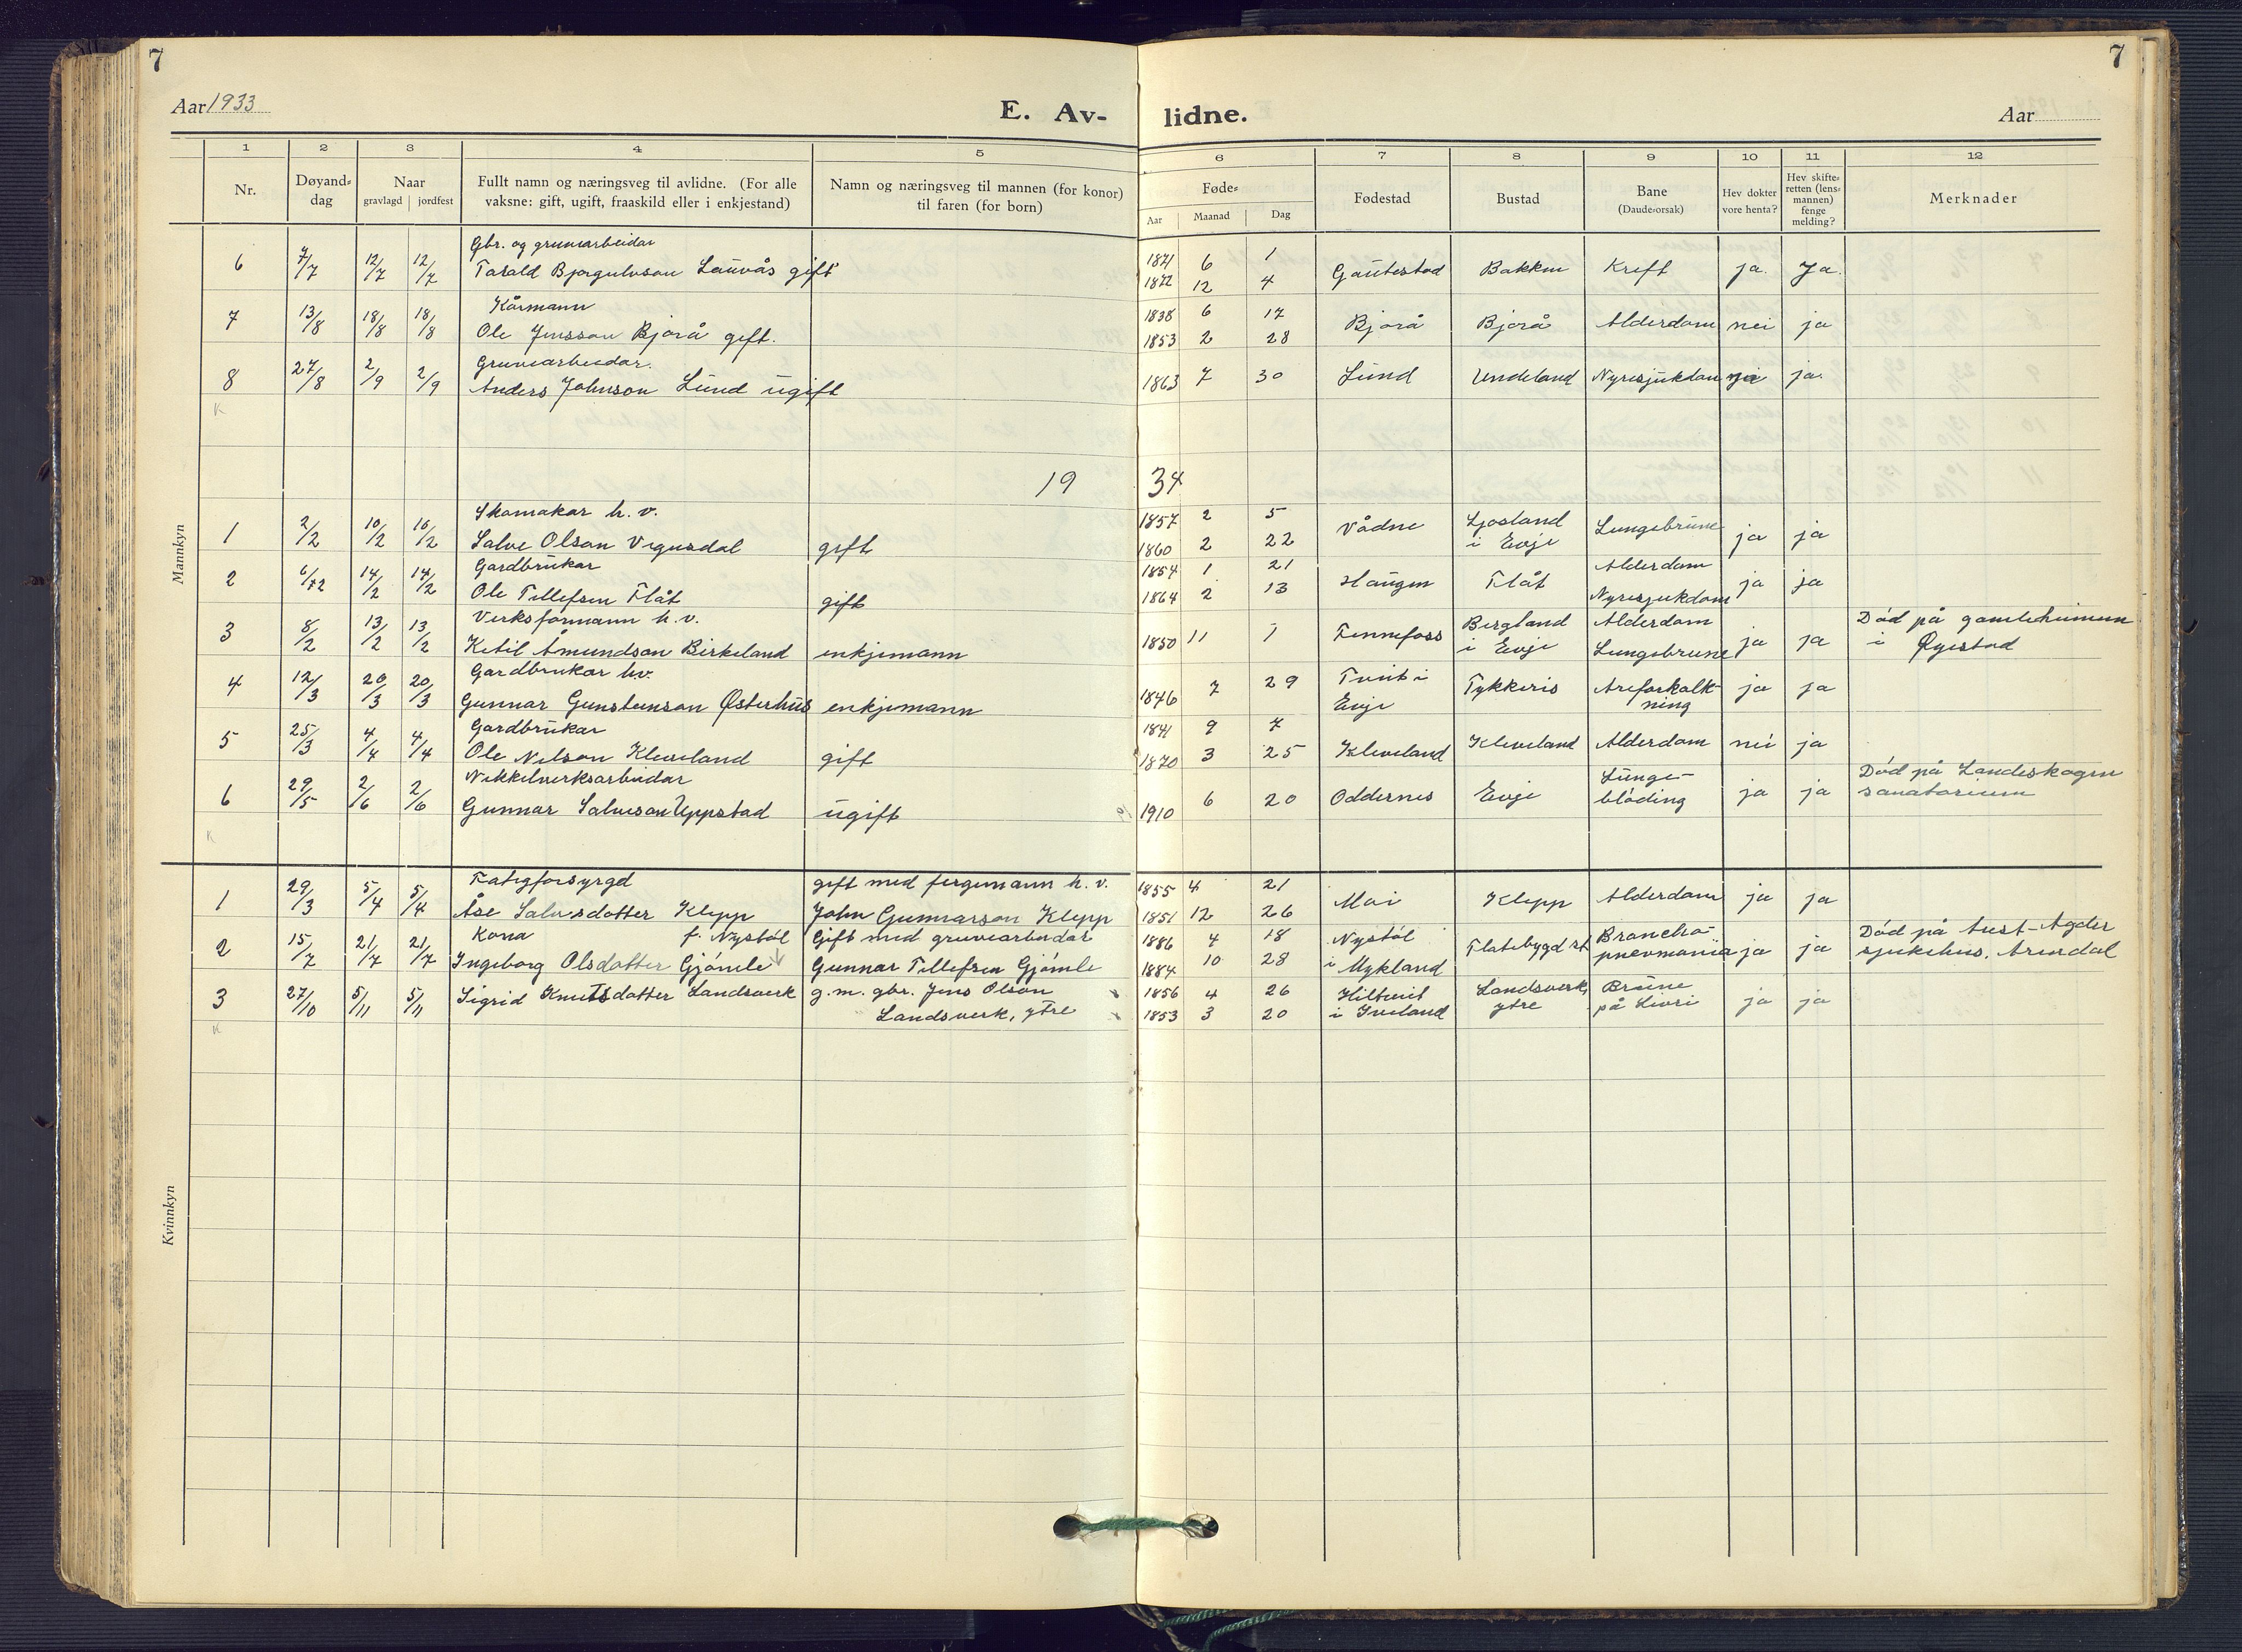 7
7
Aar 1933
E. Av-
lidne.
Aar
1 2 3 4 5 6 7 8 9 10 11 12
Nr.
Døyand-
dag
Naar
gravlagd jordfest
Fullt namn og næringsveg til avlidne. (For alle
vaksne: gift, ugift, fraaskild eller i enkjestand)
Namn og næringsveg til mannen (for konor)
til faren (for born)
Føde-
Aar Maanad Dag
Fødestad
Bustad
Bane
(Daude-orsak)
Hev dokter
vore henta?
Hev skifte-
retten (lens-
mannen)
fenge
melding?
Merknader
Mannkyn
Gbr. og gruvearbeidar
6 7/7 12/7 12/7 Tarald Bjorgulvson Lauvås gift
1871 6 1
1872 12 4
Gautestad Bakken Kreft ja. Ja.
Kårmann
7 13/8 18/8 18/8 Ole Jensson Bjorå gift.
1838 6 17
1853 2 28
Bjorå Bjorå Alderdom nei ja
Gruvearbeidar.
8 27/8 2/9 2/9 Anders Johnson Lund ugift
1863 7 30 Lund Undeland Nyresjukdom ja.
K
19 34
Skomakar h. v.
1 2/2 10/2 10/2 Salve Olson Vegusdal gift
1857 2 5
1860 2 22
Vådne
Ljosland
i Evje
Lungebrune ja ja
Gardbrukar
2 6/2 14/2 14/2 Ole Tellefsen Flåt gift
1854 1 21
1864 2 13
Haugen Flåt
Alderdom
Nyresjukdom
ja ja
Verksformann h. v.
3 8/2 13/2 13/2 Ketil Åmundson Birkeland enkjemann
1850 11 1 Fennefoss
Bergland
i Evje
Alderdom
Lungebrune
ja ja
Død på gamleheimen
i Øyestad
Gardbrukar hv.
4 12/3 20/3 20/3 Gunnar Gunsteinson Østerhus enkjemann
1846 7 29
Tveit i
Evje
Tykkeris
Areforkalk-
ning
ja ja
Gardbrukar
5 25/3 4/4 4/4 Ole Nilson Kleveland gift
1841 9 7
1870 3 25
Kleveland Kleveland Alderdom nei ja
Nikkelverksarbeidar
6 29/5 2/6 2/6 Gunnar Salveson Uppstad ugift
1910 6 20 Oddernes Evje
Lunge-
bløding
ja ja
Død på Landeskogen
sanatorium
K
Kvinnkyn
Fatigforsyrgd
1 29/3 5/4 5/4 Åse Salvesdotter Klepp
gift med fergemann h. v.
John Gunnarson Klepp
1855 4 21
1851 12 26
Moi Klepp Alderdom ja ja
Kona f. Nystøl
2 15/7 21/7 21/7 Ingeborg Olsdotter Gjømle
Gift med gruvearbeidar
Gunnar Tellefsen Gjømle
1886 4 18
1884 10 28
Nystøl
i Mykland
Flatebygd st.
Broncho-
pneumonia
ja ja
Død på Aust-Agder
sjukehus, Arendal
3 27/10 5/11 5/11 Sigrid Knutsdotter Landsverk
g. m. gbr. Jens Olson
Landsverk, ytre
1856 4 26
1853 3 20
Hiltveit
i Iveland
Landsverk,
ytre
Brune
på Livri
ja ja
K